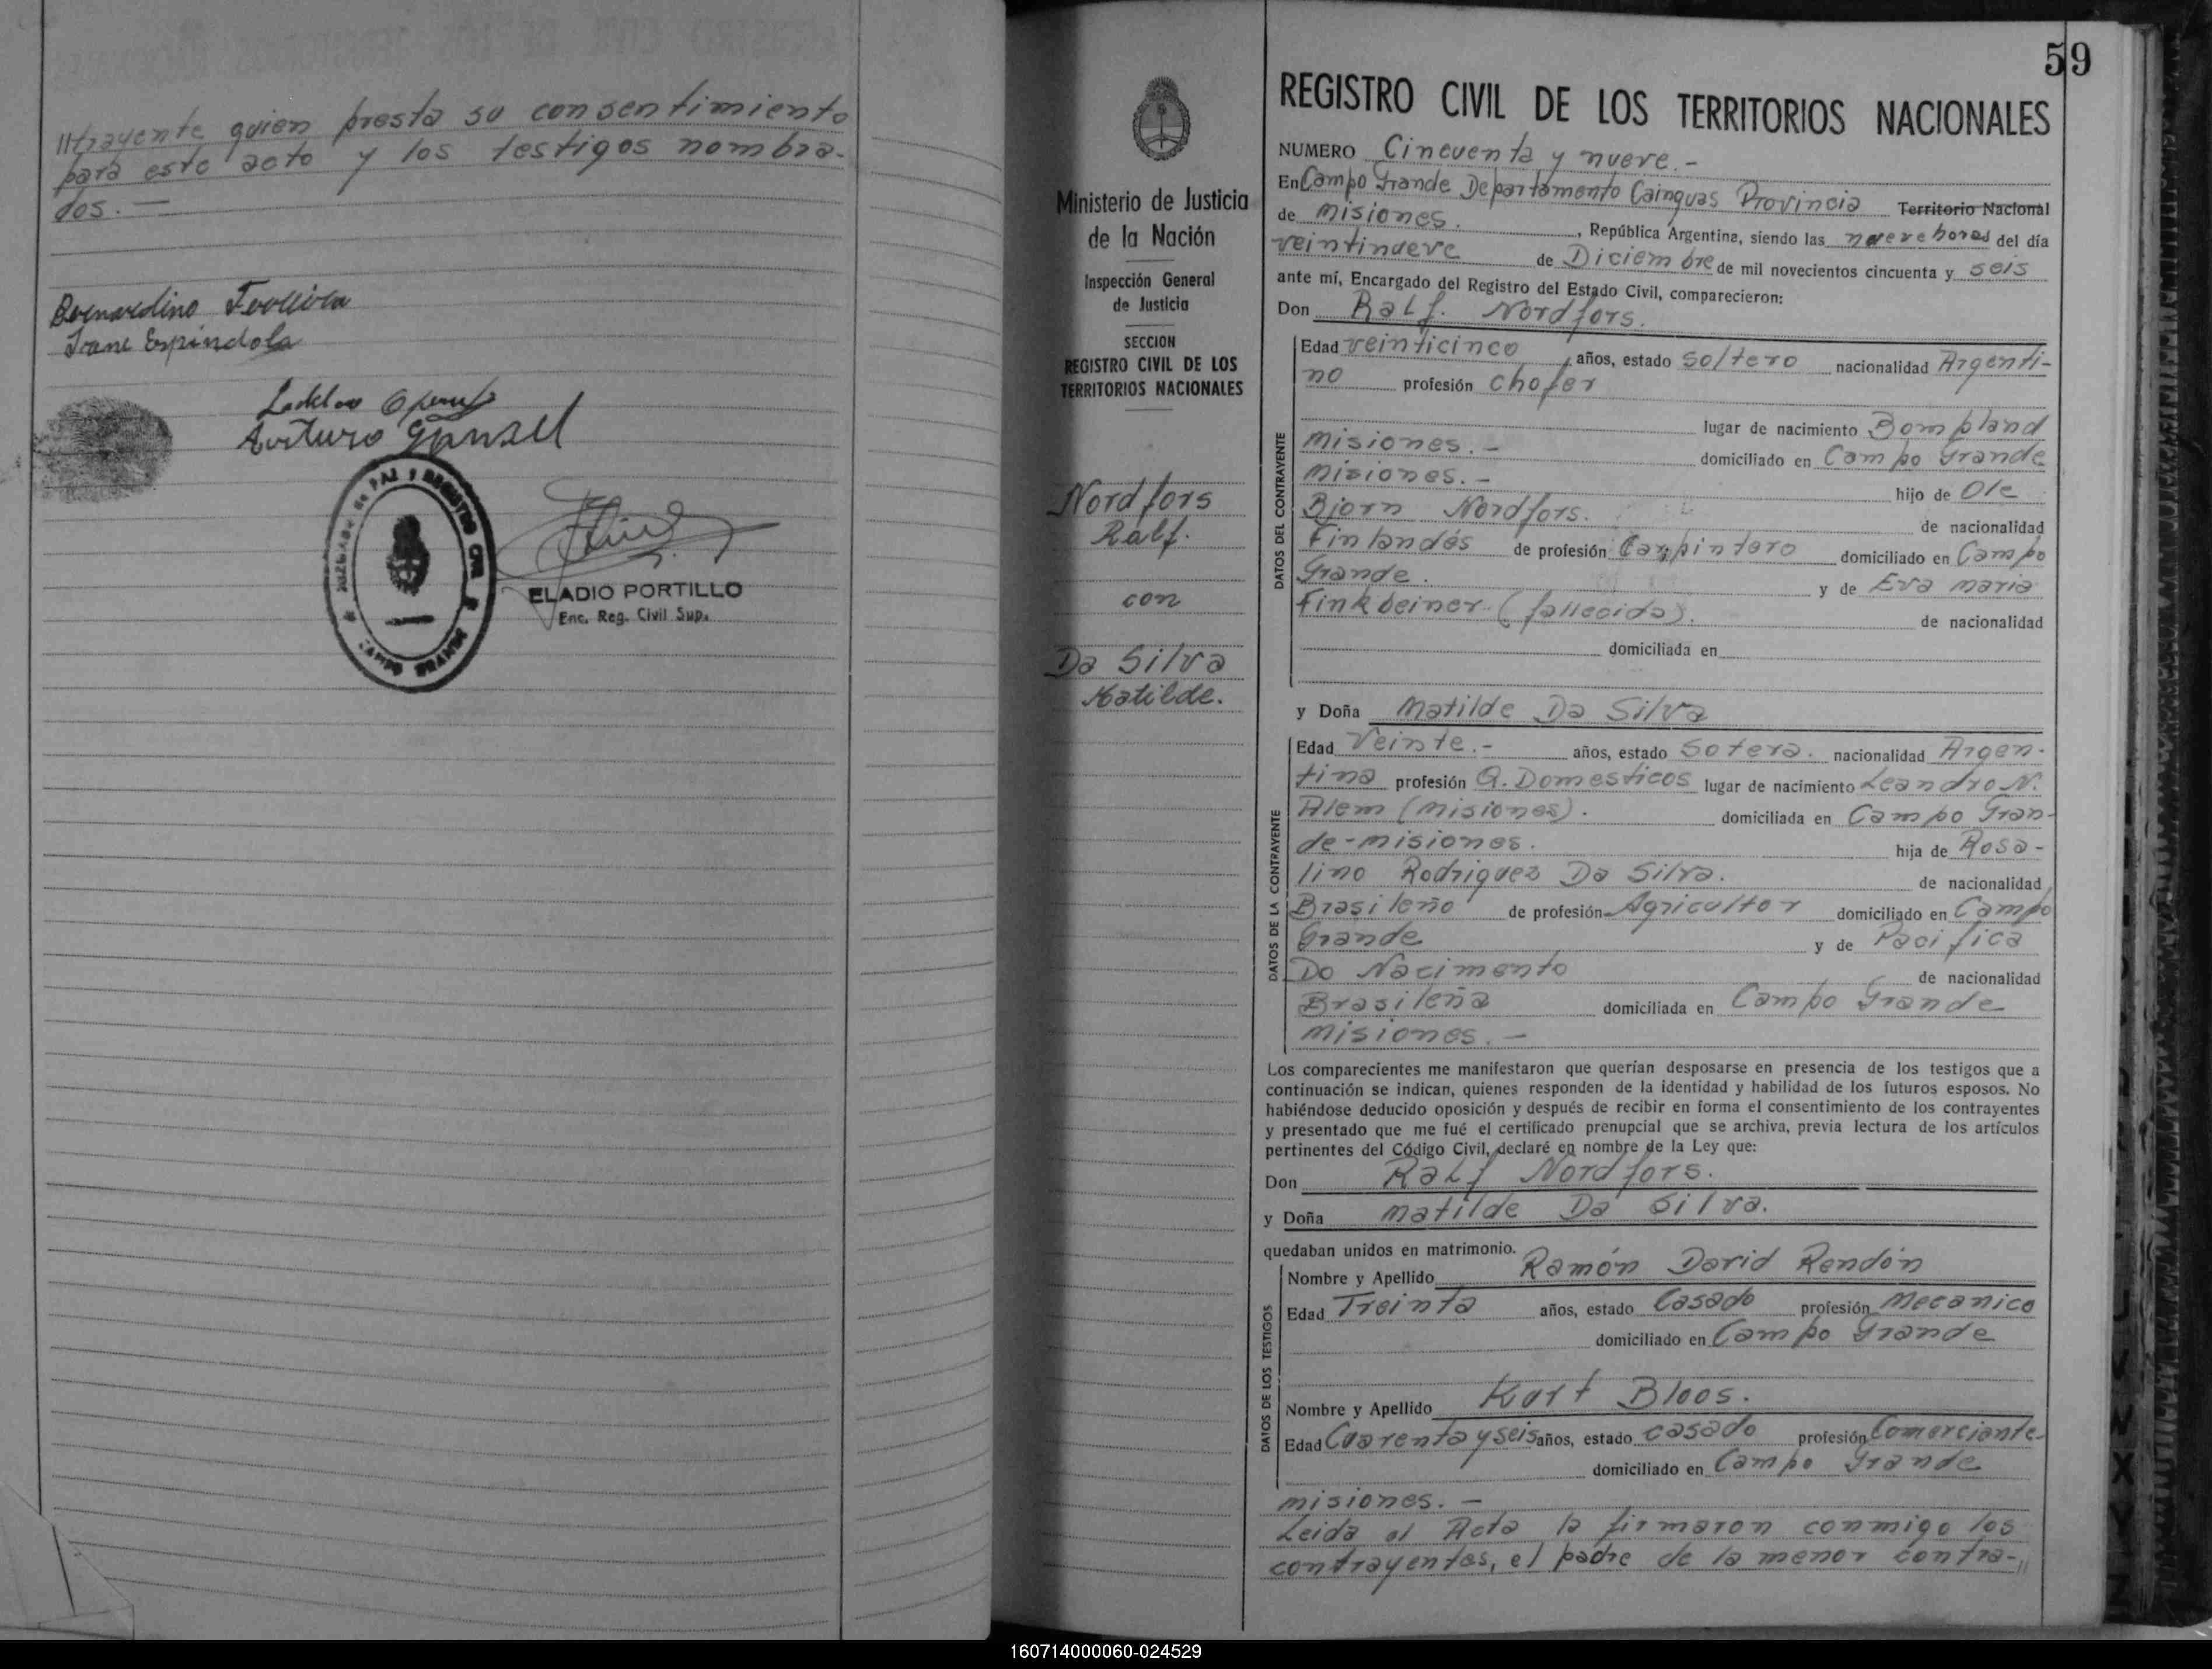 IItrayente quien presta su consentimiento
para este acto y los testigos nombra-
dos. —
Bernardino
Irane Espindola
Arturo
DE PAZ Y REGISTRO CIVIL
CAMPO GRANDE
ELADIO PORTILLO
Enc. Reg. Civil Sup.
59
Ministerio de Justicia
de la Nación
Inspección General
de Justicia
SECCION
REGISTRO CIVIL DE LOS
TERRITORIOS NACIONALES
Nordfors
Ralf.
con
Da Silva
Matilde.
REGISTRO CIVIL DE LOS TERRITORIOS NACIONALES
NUMERO Cincuenta y nueve.-
En Campo Grande Departamento Cainguas Provincia Territorio Nacional
de Misiones. , República Argentina, siendo las nueve horas del día
veintinueve de Diciembre de mil novecientos cincuenta y seis
ante mí, Encargado del Registro del Estado Civil, comparecieron:
Don Ralf. Nordfors.
DATOS DEL CONTRAYENTE
Edad veinticinco años, estado soltero nacionalidad Argenti-
no profesión chofer
lugar de nacimiento Bompland
Misiones.- domiciliado en Campo Grande
Misiones.- hijo de Ole
Bjorn Nordfors. de nacionalidad
Finlandés de profesión Carpintero domiciliado en Campo
Grande. y de Eva Maria
Finkbeiner (fallecida). de nacionalidad
domiciliada en
y Doña Matilde Da Silva
DATOS DE LA CONTRAYENTE
Edad Veinte.- años, estado Sotera. nacionalidad Argen-
tina profesión Q. Domesticos lugar de nacimiento Leandro N.
Alem (Misiones). domiciliada en Campo Gran-
de-Misiones. hija de Rosa-
lino Rodriguez Da Silva. de nacionalidad
Brasileño de profesión Agricultor domiciliado en Campo
Grande y de Pacifica
Do Nacimento de nacionalidad
Brasileña domiciliada en Campo Grande
Misiones.-
Los comparecientes me manifestaron que querían desposarse en presencia de los testigos que a
continuación se indican, quienes responden de la identidad y habilidad de los futuros esposos. No
habiéndose deducido oposición y después de recibir en forma el consentimiento de los contrayentes
y presentado que me fué el certificado prenupcial que se archiva, previa lectura de los artículos
pertinentes del Código Civil, declaré en nombre de la Ley que:
Don Ralf Nordfors.
y Doña Matilde Da Silva.
quedaban unidos en matrimonio.
DATOS DE LOS TESTIGOS
Nombre y Apellido Ramón David Rendón
Edad Treinta años, estado Casado profesión Mecanico
domiciliado en Campo Grande
Nombre y Apellido Kurt Bloos.
Edad Cuarenta y seis años, estado casado profesión Comerciante
domiciliado en Campo Grande
Misiones.-
Leida el Acta la firmaron conmigo los
contrayentes, el padre de la menor contra-II
160714000060-024529